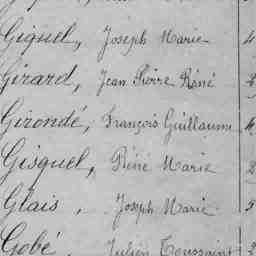 Giquel, Joseph Marie
Girard, Jean Pierre Réné
Girondé, François Guillaume
Gisquel, Réné Marie
Glais, Joseph Marie 5
Gobé, Julien Toussaint